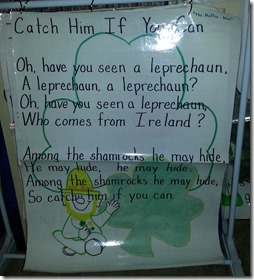 Catch Him If You Can
"The Muffin Man"
Oh, have you seen a leprechaun,
A leprechaun, a leprechaun?
Oh, have you seen a leprechaun,
Who comes from Ireland?
Among the shamrocks he may hide,
He may hide, he may hide.
Among the shamrocks he may hide,
So catch him if you can.